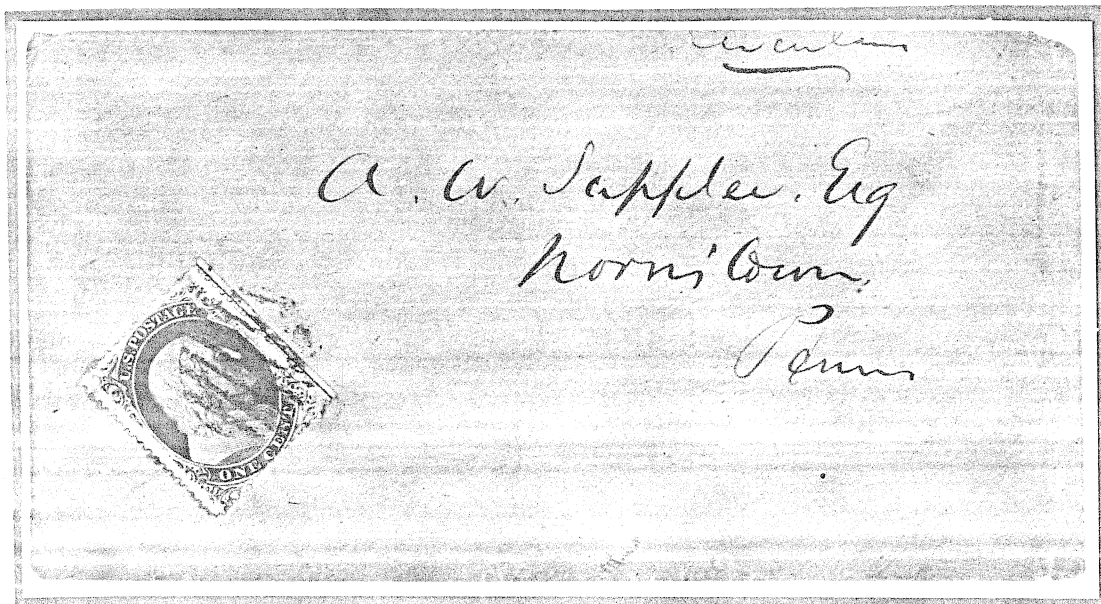 Circular
A. W. Supplee. Esq
Norristown,
Penna
U.S. POSTAGE
ONE CENT